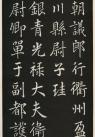 朝議郎行衢州盈
川縣尉子珪
銀青光祿大夫衛
尉卿單于副都護